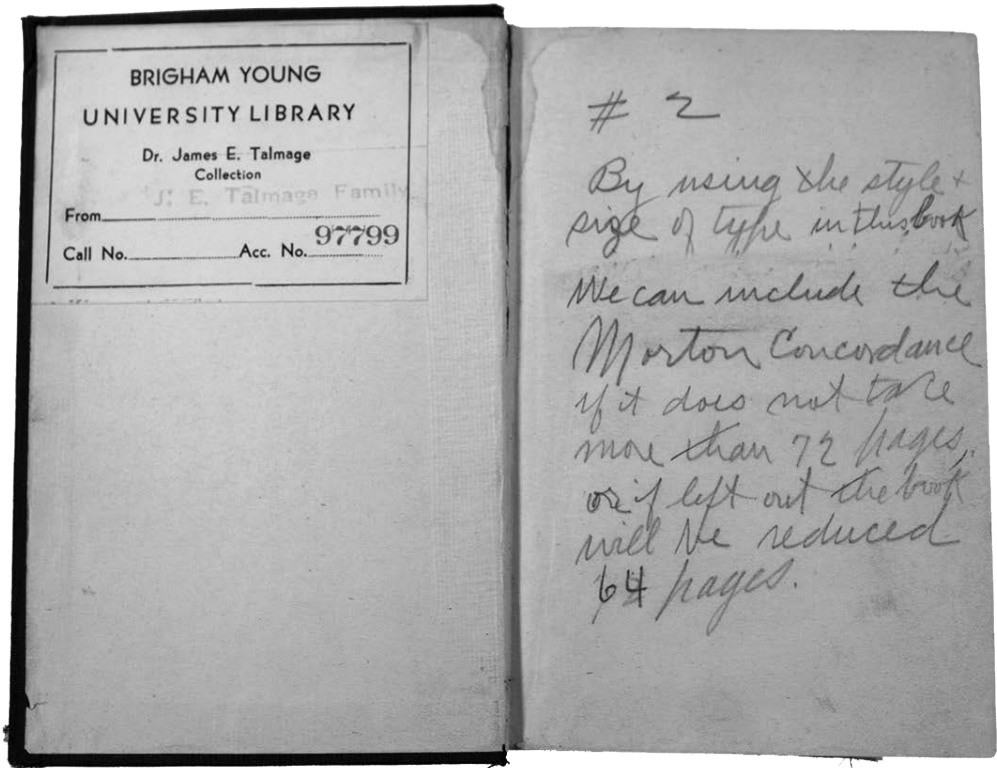 BRIGHAM YOUNG
UNIVERSITY LIBRARY
Dr. James E. Talmage
Collection
J. E. Talmage Family
From
97799
Call No. Acc. No.
# 2
By using the style +
size of type in this book
We can include the
Morton Concordance
if it does not take
more than 72 pages,
or if left out the book
will be reduced
64 pages.